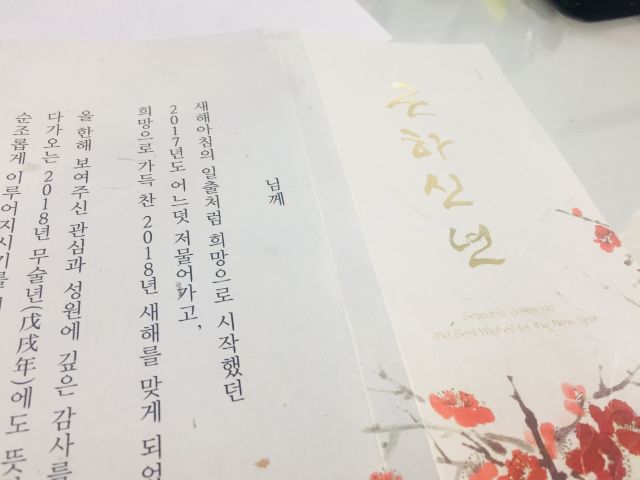 근하신년
Season's Greetings
and Best Wishes for the New Year
님께
새해아침의 일출처럼 희망으로 시작했던
2017년도 어느덧 저물어가고,
희망으로 가득 찬 2018년 새해를 맞게 되었
올 한해 보여주신 관심과 성원에 깊은 감사를
다가오는 2018년 무술년(戊戌年)에도 뜻
순조롭게 이루어지시기를